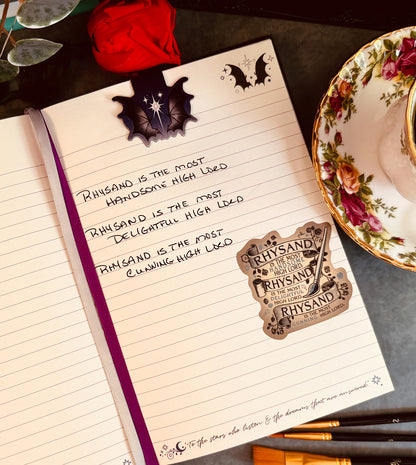 RHYSAND IS THE MOST
HANDSOME HIGH LORD
RHYSAND IS THE MOST
DELIGHTFUL HIGH LORD
RHYSAND IS THE MOST
CUNNING HIGH LORD
RHYSAND
IS THE MOST
HANDSOME
HIGH LORD
RHYSAND
IS THE MOST
DELIGHTFUL
HIGH LORD
RHYSAND
IS THE MOST
CUNNING HIGH LORD
To the stars who listen & the dreams that are answered